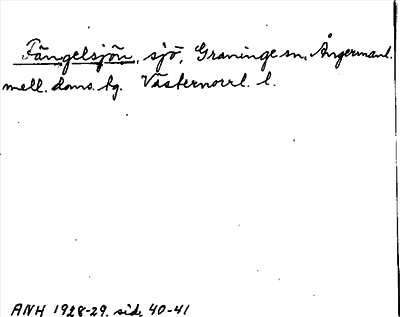 Fängelsjön, sjö, Graninge sn, Ångermanl.
mell. doms. tg. Västernorrl. l.
ANH 1928-29, sid. 40-41